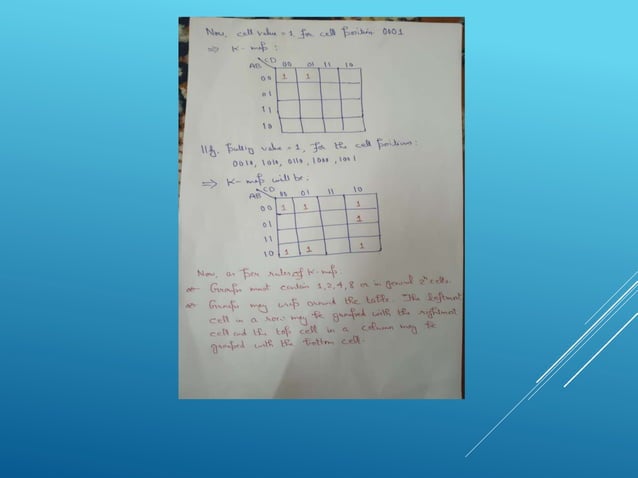 Now, cell value = 1, for cell position 0001
⇒ K-map :
CD
AB 00 01 11 10
00 1 1
01
11
10
lly. Putting value = 1, for the cell positions:
0010, 1010, 0110, 1000, 1001
⇒ K-map will be:
CD
AB 00 01 11 10
00 1 1 1
01 1
11
10 1 1 1
Now, as per rules of K-map.
Groups must contain 1, 2, 4, 8 or in general 2ⁿ cells.
Groups may wrap around the table. The leftmost
cell in a row may be grouped with the rightmost
cell and the top cell in a column may be
grouped with the bottom cell.